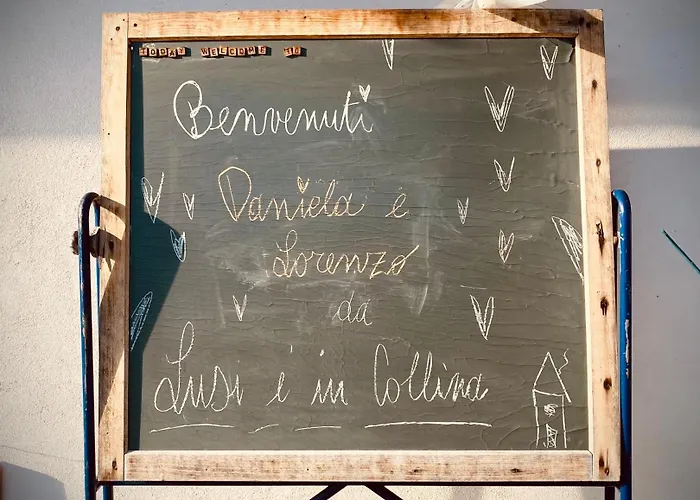 TODAY WELCOME IS
Benvenuti
Daniela e
Lorenzo
da
Lusi e' in Collina